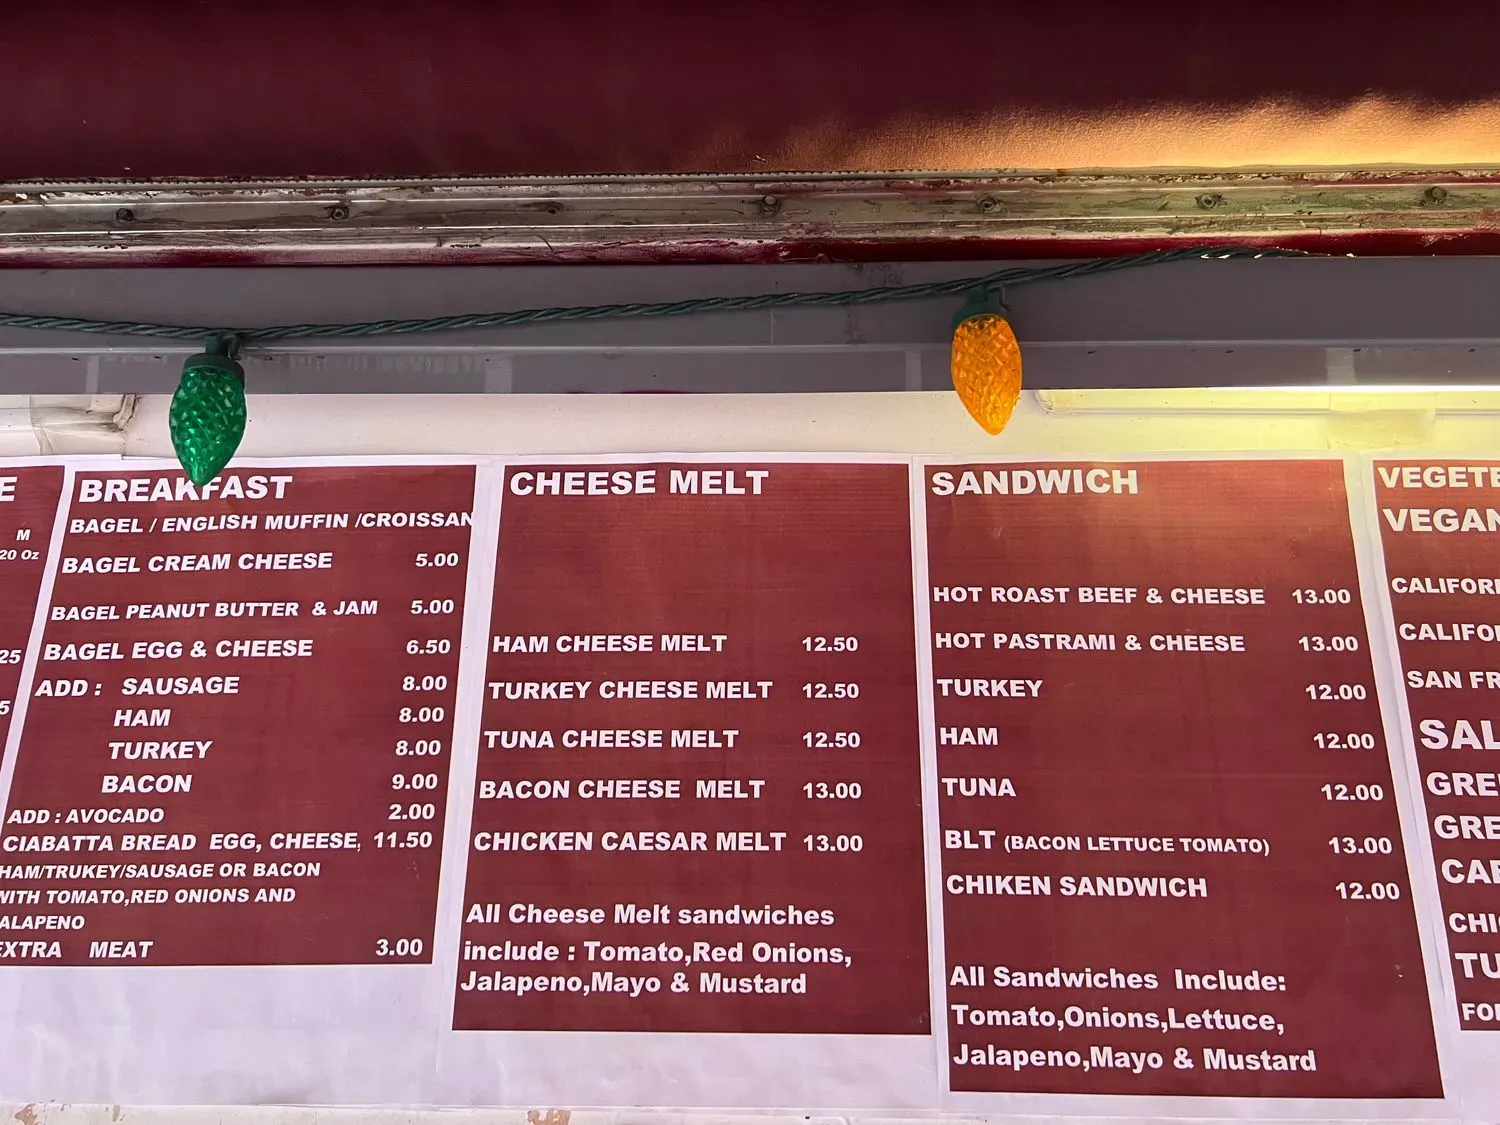 E
M
20 Oz
25
5
BREAKFAST
BAGEL / ENGLISH MUFFIN /CROISSAN
BAGEL CREAM CHEESE 5.00
BAGEL PEANUT BUTTER & JAM 5.00
BAGEL EGG & CHEESE 6.50
ADD : SAUSAGE 8.00
HAM 8.00
TURKEY 8.00
BACON 9.00
ADD : AVOCADO 2.00
CIABATTA BREAD EGG, CHEESE, 11.50
HAM/TRUKEY/SAUSAGE OR BACON
WITH TOMATO,RED ONIONS AND
ALAPENO
EXTRA MEAT 3.00
CHEESE MELT
HAM CHEESE MELT 12.50
TURKEY CHEESE MELT 12.50
TUNA CHEESE MELT 12.50
BACON CHEESE MELT 13.00
CHICKEN CAESAR MELT 13.00
All Cheese Melt sandwiches
include : Tomato,Red Onions,
Jalapeno,Mayo & Mustard
SANDWICH
HOT ROAST BEEF & CHEESE 13.00
HOT PASTRAMI & CHEESE 13.00
TURKEY 12.00
HAM 12.00
TUNA 12.00
BLT (BACON LETTUCE TOMATO) 13.00
CHIKEN SANDWICH 12.00
All Sandwiches Include:
Tomato,Onions,Lettuce,
Jalapeno,Mayo & Mustard
VEGETE
VEGAN
CALIFOR
CALIFO
SAN FR
SAL
GRE
GRE
CAE
CHIC
TU
FO